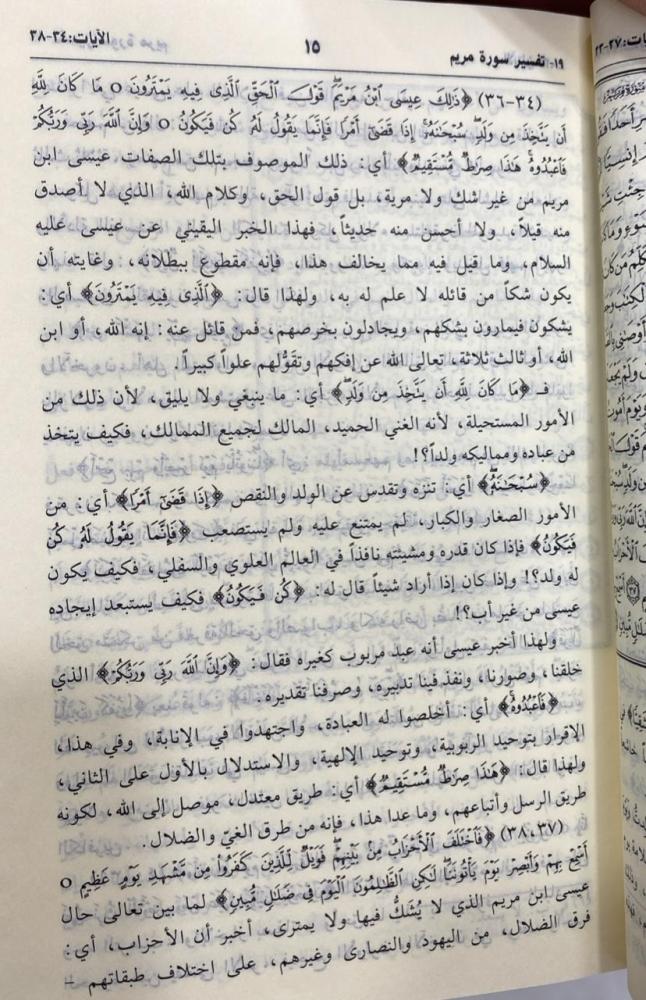 ١٩- تفسير سورة مريم ١٥ الآيات: ٣٤-٣٨
(٣٤-٣٦) ﴿ذَٰلِكَ عِيسَى ٱبْنُ مَرْيَمَ ۚ قَوْلَ ٱلْحَقِّ ٱلَّذِى فِيهِ يَمْتَرُونَ ○ مَا كَانَ لِلَّهِ
أَن يَتَّخِذَ مِن وَلَدٍ ۖ سُبْحَٰنَهُۥٓ ۚ إِذَا قَضَىٰٓ أَمْرًا فَإِنَّمَا يَقُولُ لَهُۥ كُن فَيَكُونُ ○ وَإِنَّ ٱللَّهَ رَبِّى وَرَبُّكُمْ
فَٱعْبُدُوهُ ۚ هَٰذَا صِرَٰطٌ مُّسْتَقِيمٌ﴾ أي: ذلك الموصوف بتلك الصفات عيسى ابن
مريم من غير شك ولا مرية، بل قول الحق، وكلام الله، الذي لا أصدق
منه قيلاً، ولا أحسن منه حديثاً، فهذا الخبر اليقيني عن عيسى عليه
السلام، وما قيل فيه مما يخالف هذا، فإنه مقطوع ببطلانه، وغايته أن
يكون شكاً من قائله لا علم له به، ولهذا قال: ﴿ٱلَّذِى فِيهِ يَمْتَرُونَ﴾ أي:
يشكون فيمارون بشكهم، ويجادلون بخرصهم، فمن قائل عنه: إنه الله، أو ابن
الله، أو ثالث ثلاثة، تعالى الله عن إفكهم وتقوُّلهم علواً كبيراً.
فـ ﴿مَا كَانَ لِلَّهِ أَن يَتَّخِذَ مِن وَلَدٍ﴾ أي: ما ينبغي ولا يليق، لأن ذلك من
الأمور المستحيلة، لأنه الغني الحميد، المالك لجميع الممالك، فكيف يتخذ
من عباده ومماليكه ولداً؟!
﴿سُبْحَٰنَهُۥ﴾ أي: تنزه وتقدس عن الولد والنقص ﴿إِذَا قَضَىٰٓ أَمْرًا﴾ أي: من
الأمور الصغار والكبار، لم يمتنع عليه ولم يستصعب ﴿فَإِنَّمَا يَقُولُ لَهُۥ كُن
فَيَكُونُ﴾ فإذا كان قدره ومشيئته نافذاً في العالم العلوي والسفلي، فكيف يكون
له ولد؟! وإذا كان إذا أراد شيئاً قال له: ﴿كُن فَيَكُونُ﴾ فكيف يستبعد إيجاده
عيسى من غير أب؟!
ولهذا أخبر عيسى أنه عبد مربوب كغيره فقال: ﴿وَإِنَّ ٱللَّهَ رَبِّى وَرَبُّكُمْ﴾ الذي
خلقنا، وصورنا، ونفذ فينا تدبيره، وصرفنا تقديره.
﴿فَٱعْبُدُوهُ﴾ أي: أخلصوا له العبادة، واجتهدوا في الإنابة، وفي هذا،
الإقرار بتوحيد الربوبية، وتوحيد الإلهية، والاستدلال بالأول على الثاني،
ولهذا قال: ﴿هَٰذَا صِرَٰطٌ مُّسْتَقِيمٌ﴾ أي: طريق معتدل، موصل إلى الله، لكونه
طريق الرسل وأتباعهم، وما عدا هذا، فإنه من طرق الغيّ والضلال.
(٣٧، ٣٨) ﴿فَٱخْتَلَفَ ٱلْأَحْزَابُ مِنۢ بَيْنِهِمْ ۖ فَوَيْلٌ لِّلَّذِينَ كَفَرُوا۟ مِن مَّشْهَدِ يَوْمٍ عَظِيمٍ ○
أَسْمِعْ بِهِمْ وَأَبْصِرْ يَوْمَ يَأْتُونَنَا ۖ لَٰكِنِ ٱلظَّٰلِمُونَ ٱلْيَوْمَ فِى ضَلَٰلٍ مُّبِينٍ﴾ لما بين تعالى حال
عيسى ابن مريم الذي لا يُشَكُّ فيها ولا يمترى، أخبر أن الأحزاب، أي:
فرق الضلال، من اليهود والنصارى وغيرهم، على اختلاف طبقاتهم